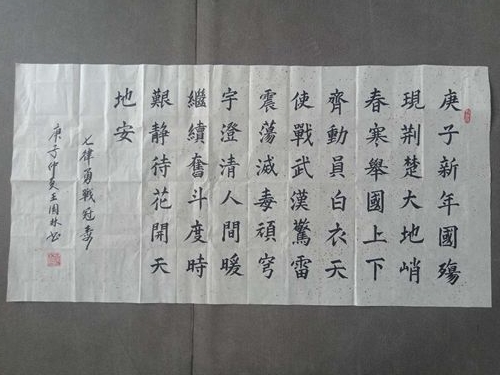 庚子新年國殤
現荆楚大地峭
春寒舉國上下
齊動員白衣天
使戰武漢驚雷
震蕩滅毒頑穹
宇澄清人間暖
繼續奮斗度時
艱静待花開天
地安
七律勇戰冠毒
庚子仲夏王国林书